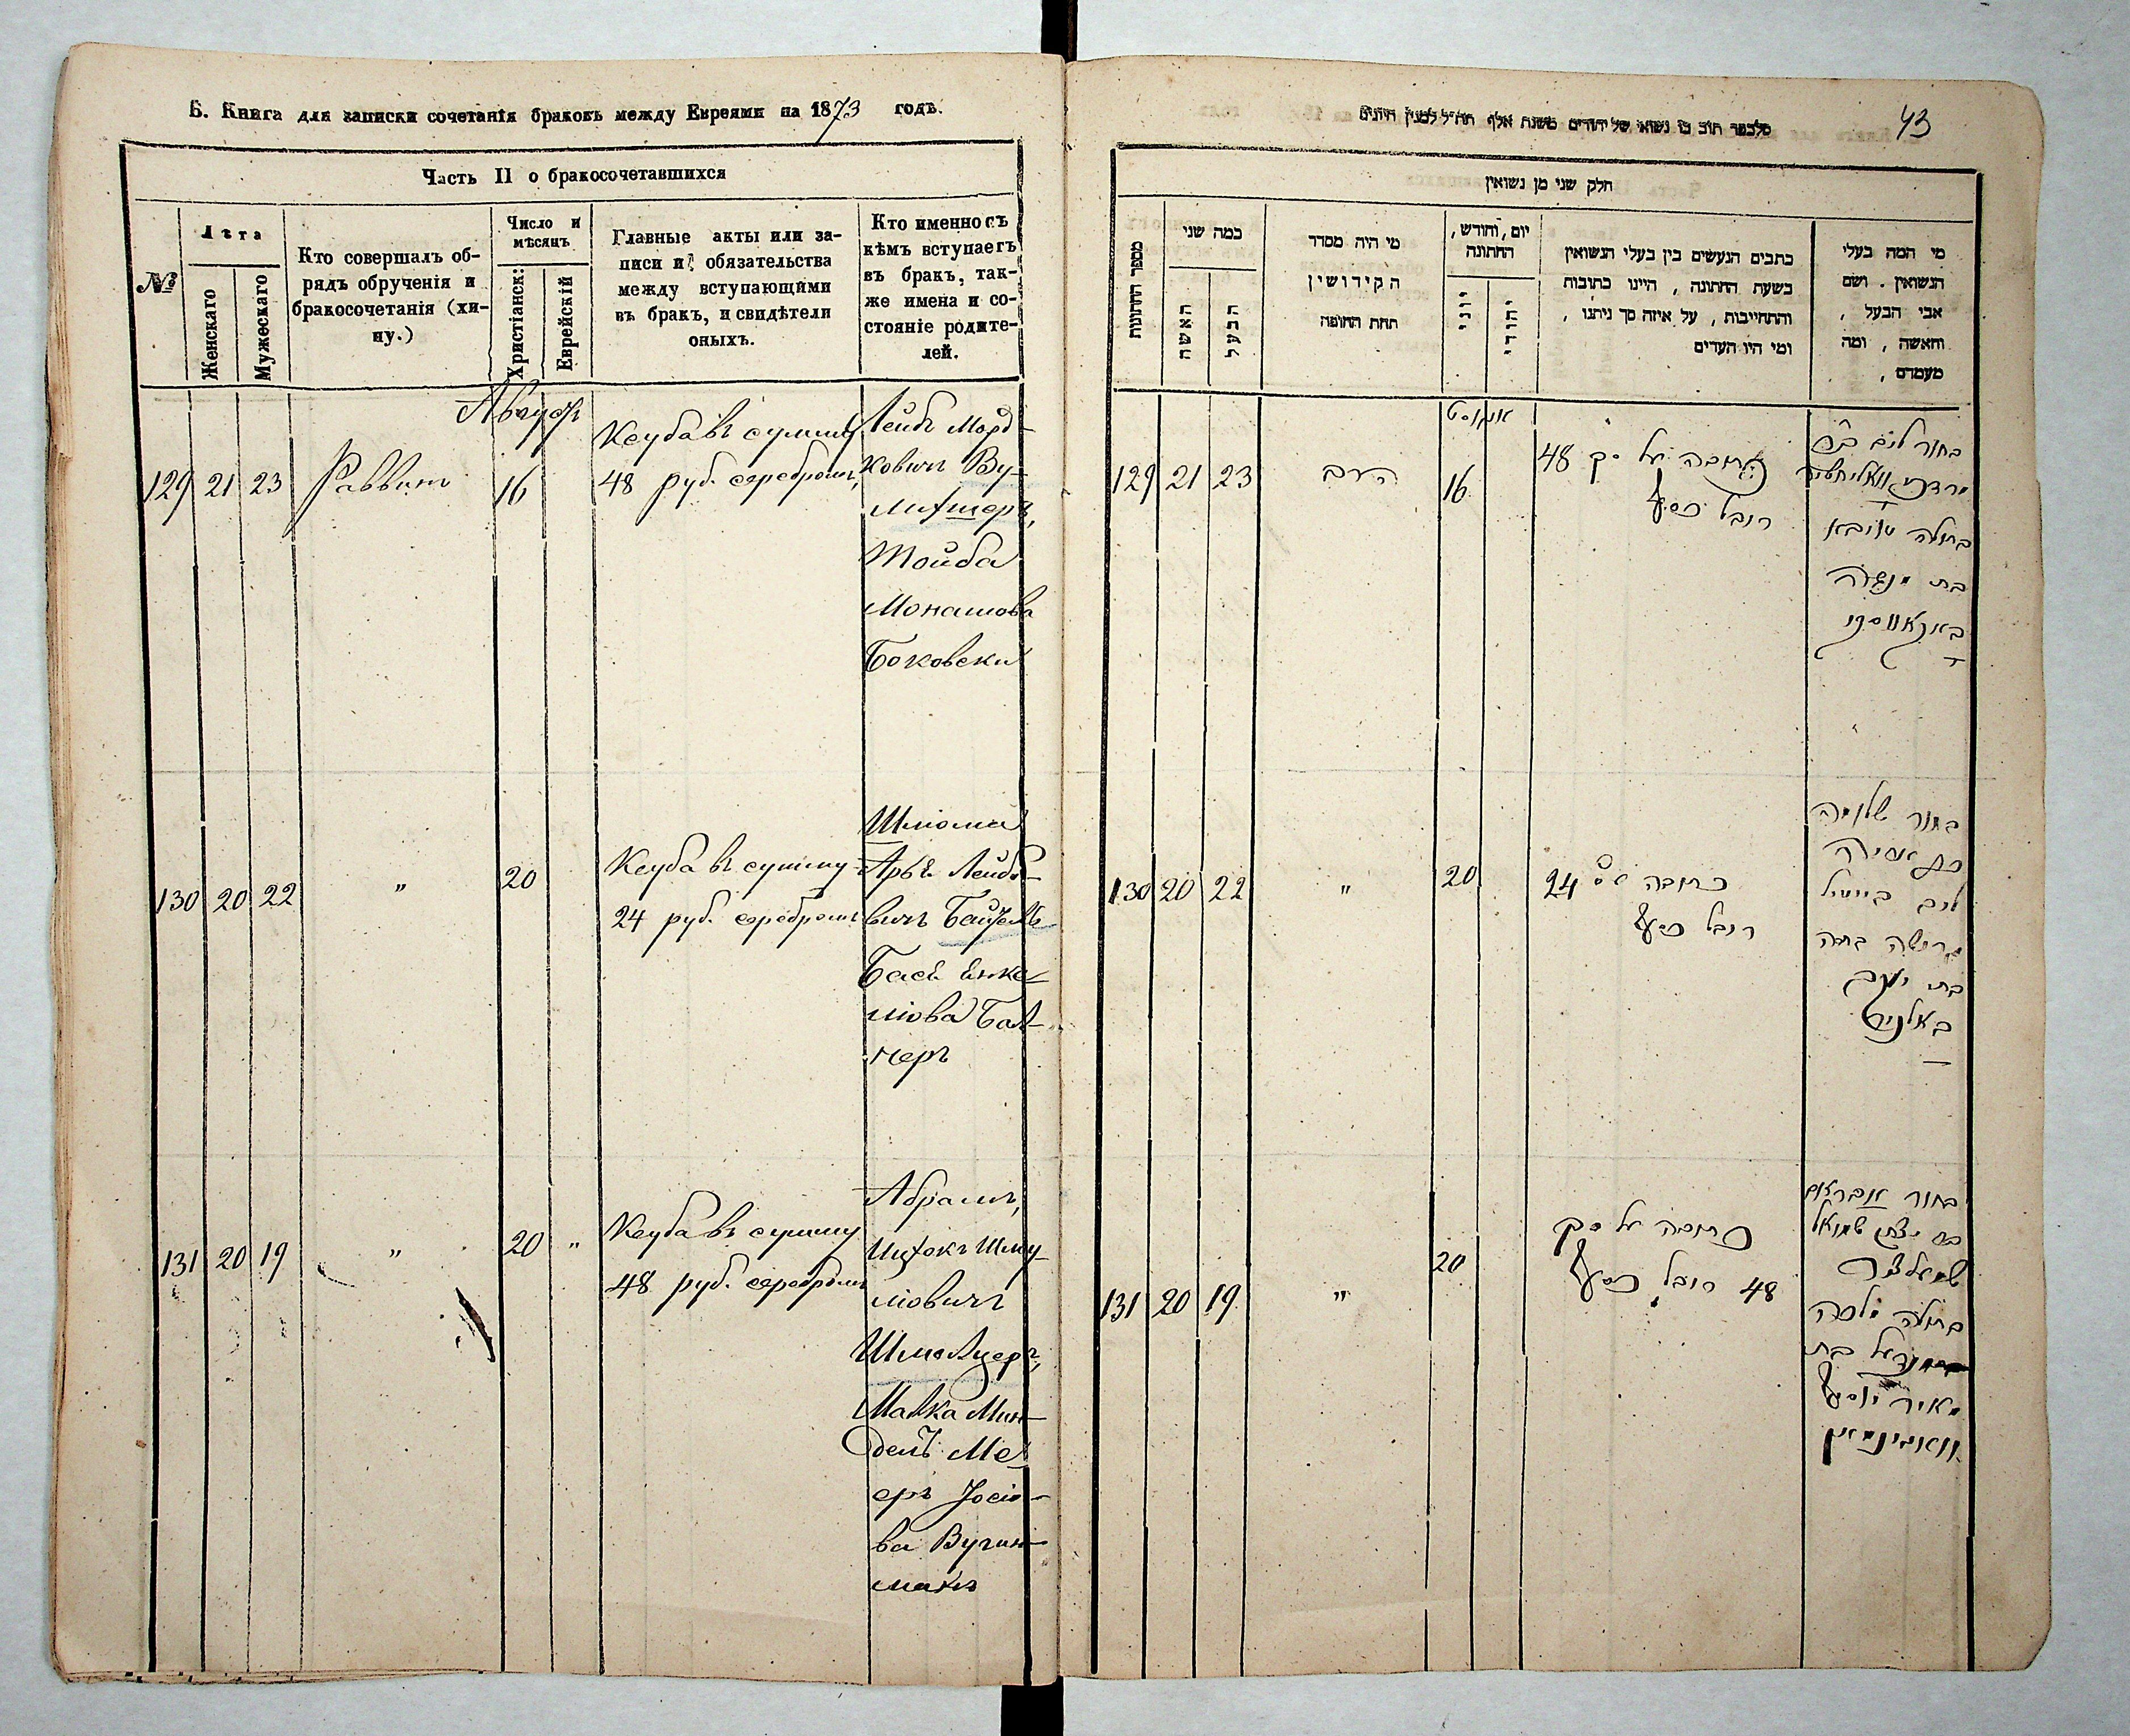 Б. Книга для записки сочетанія браковъ между Евреями на 1873 годъ.
Часть II о бракосочетавшихся
№
Лѣта
Женскаго
Мужескаго
Кто совершалъ об-
рядъ обрученія и
бракосочетанія (хи-
пу.)
Число и
мѣсяцъ
Христіанск:
Еврейскій
Главные акты или за-
писи и обязательства
между вступающими
въ бракъ, и свидѣтели
оныхъ.
Кто именно съ
кѣмъ вступаетъ
въ бракъ, так-
же имена и со-
стояніе родите-
лей.
Август
129 21 23 Раввинъ 16
Кеуба въ сумму
48 руб. серебромъ,
Лейбъ Морд-
ковичъ Ву-
Тойба
Монашова
Боковски
130 20 22 " 20
Кеуба въ сумму
24 руб. серебромъ
Шлиома
Арье Лейбо-
вичъ
Бася Янке-
ліова Бал-
неръ
131 20 19 " 20 "
Кеуба въ сумму
48 руб. серебромъ
Абрамъ,
Ицхокъ Шму-
ліовичъ
Шмелцеръ,
Малка Мин-
дель Ме-
еръ Іосіо-
ва
манъ
43
חלק שני מן נשואין
מספר החתונות
כמה שני
האשה
הבעל
מי היה מסדר
הקידושין
תחת החופה
יום, וחודש,
החתונה
יוני
יהודי
כתבים הנעשים בין בעלי הנשואין
בשעת החתונה, היינו כתובות
והתחייבות, על איזה סך ניתנו,
ומי היו העדים
מי המה בעלי
הנשואין. ושם
אבי הבעל,
והאשה, ומה
מעמדם,
אוגוסט
129 21 23 הרב 16
כתובה על סך 48
רובל כסף
בחור ליב ב״ר
בתולה טויבא
בת מנשה
באקאווסקי
130 20 22 " 20
כתובה 24
רובל כסף
בחור שלומה
ליב
בת יעקב
באלניר
131 20 19 " 20
כתובה על סך
48 רובל כסף
בחור אברהם
יצחק שמואל
שמעלצר
בתולה מלכה
מינדל בת
מאיר יוסף